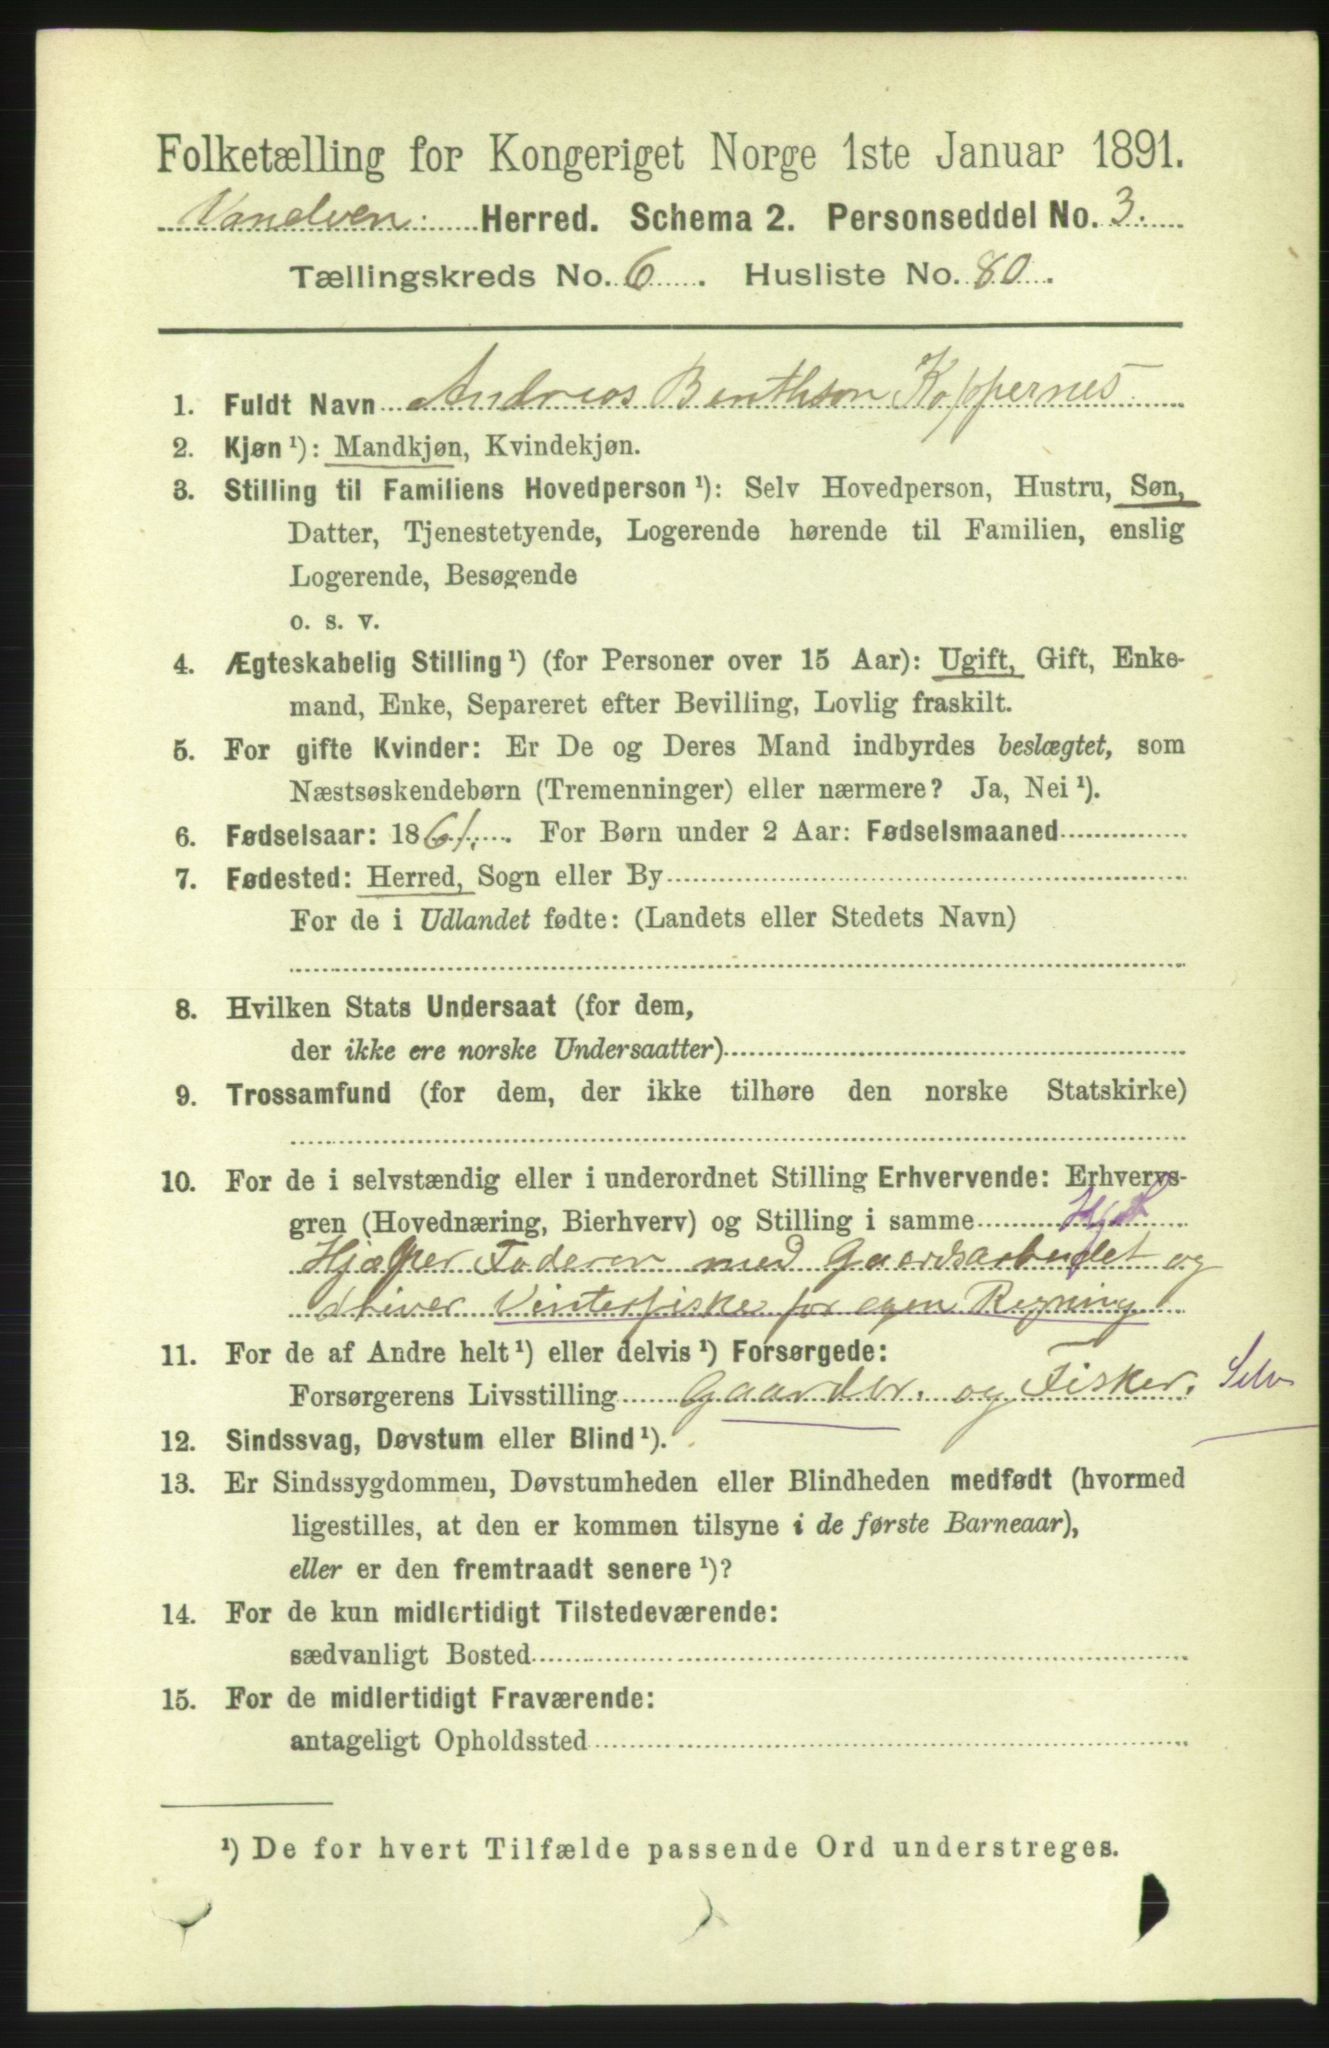 Folketælling for Kongeriget Norge 1ste Januar 1891.
Vanelven. Herred. Schema 2. Personseddel No. 3.
Tællingskreds No. 6. Husliste No. 80.
1. Fuldt Navn Andreas Benthson Koppernes
2. Kjøn ¹): Mandkjøn, Kvindekjøn.
3. Stilling til Familiens Hovedperson ¹): Selv Hovedperson, Hustru, Søn,
Datter, Tjenestetyende, Logerende hørende til Familien, enslig
Logerende, Besøgende
o. s. v.
4. Ægteskabelig Stilling ¹) (for Personer over 15 Aar): Ugift, Gift, Enke-
mand, Enke, Separeret efter Bevilling, Lovlig fraskilt.
5. For gifte Kvinder: Er De og Deres Mand indbyrdes beslægtet, som
Næstsøskendebørn (Tremenninger) eller nærmere? Ja, Nei ¹).
6. Fødselsaar: 1861. For Børn under 2 Aar: Fødselsmaaned
7. Fødested: Herred, Sogn eller By
For de i Udlandet fødte: (Landets eller Stedets Navn)
8. Hvilken Stats Undersaat (for dem,
der ikke ere norske Undersaatter)
9. Trossamfund (for dem, der ikke tilhøre den norske Statskirke)
10. For de i selvstændig eller i underordnet Stilling Erhvervende: Erhvervs-
gren (Hovednæring, Bierhverv) og Stilling i samme
Hjælper Faderen med Gaardsarbeidet og
driver Vinterfiske for egen Regning
11. For de af Andre helt ¹) eller delvis ¹) Forsørgede:
Forsørgerens Livsstilling Gaardbr. og Fisker. Selv
12. Sindssvag, Døvstum eller Blind ¹).
13. Er Sindssygdommen, Døvstumheden eller Blindheden medfødt (hvormed
ligestilles, at den er kommen tilsyne i de første Barneaar),
eller er den fremtraadt senere ¹)?
14. For de kun midlertidigt Tilstedeværende:
sædvanligt Bosted
15. For de midlertidigt Fraværende:
antageligt Opholdssted
¹) De for hvert Tilfælde passende Ord understreges.